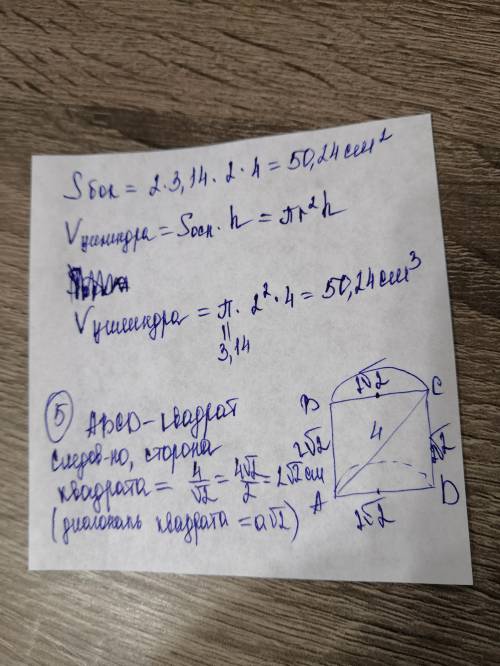 Sбок = 2·3,14·2·4 = 50,24 см²
Vцилиндра = Sосн·h = πr²h
Vцилиндра = π·2²·4 = 50,24 см³
||
3,14
⑤ ABCD – квадрат
следов-но, сторона
квадрата = 4/√2 = 4√2/2 = 2√2 см
(диагональ квадрата = a√2)
2√2
B C
2√2 4 2√2
A D
2√2